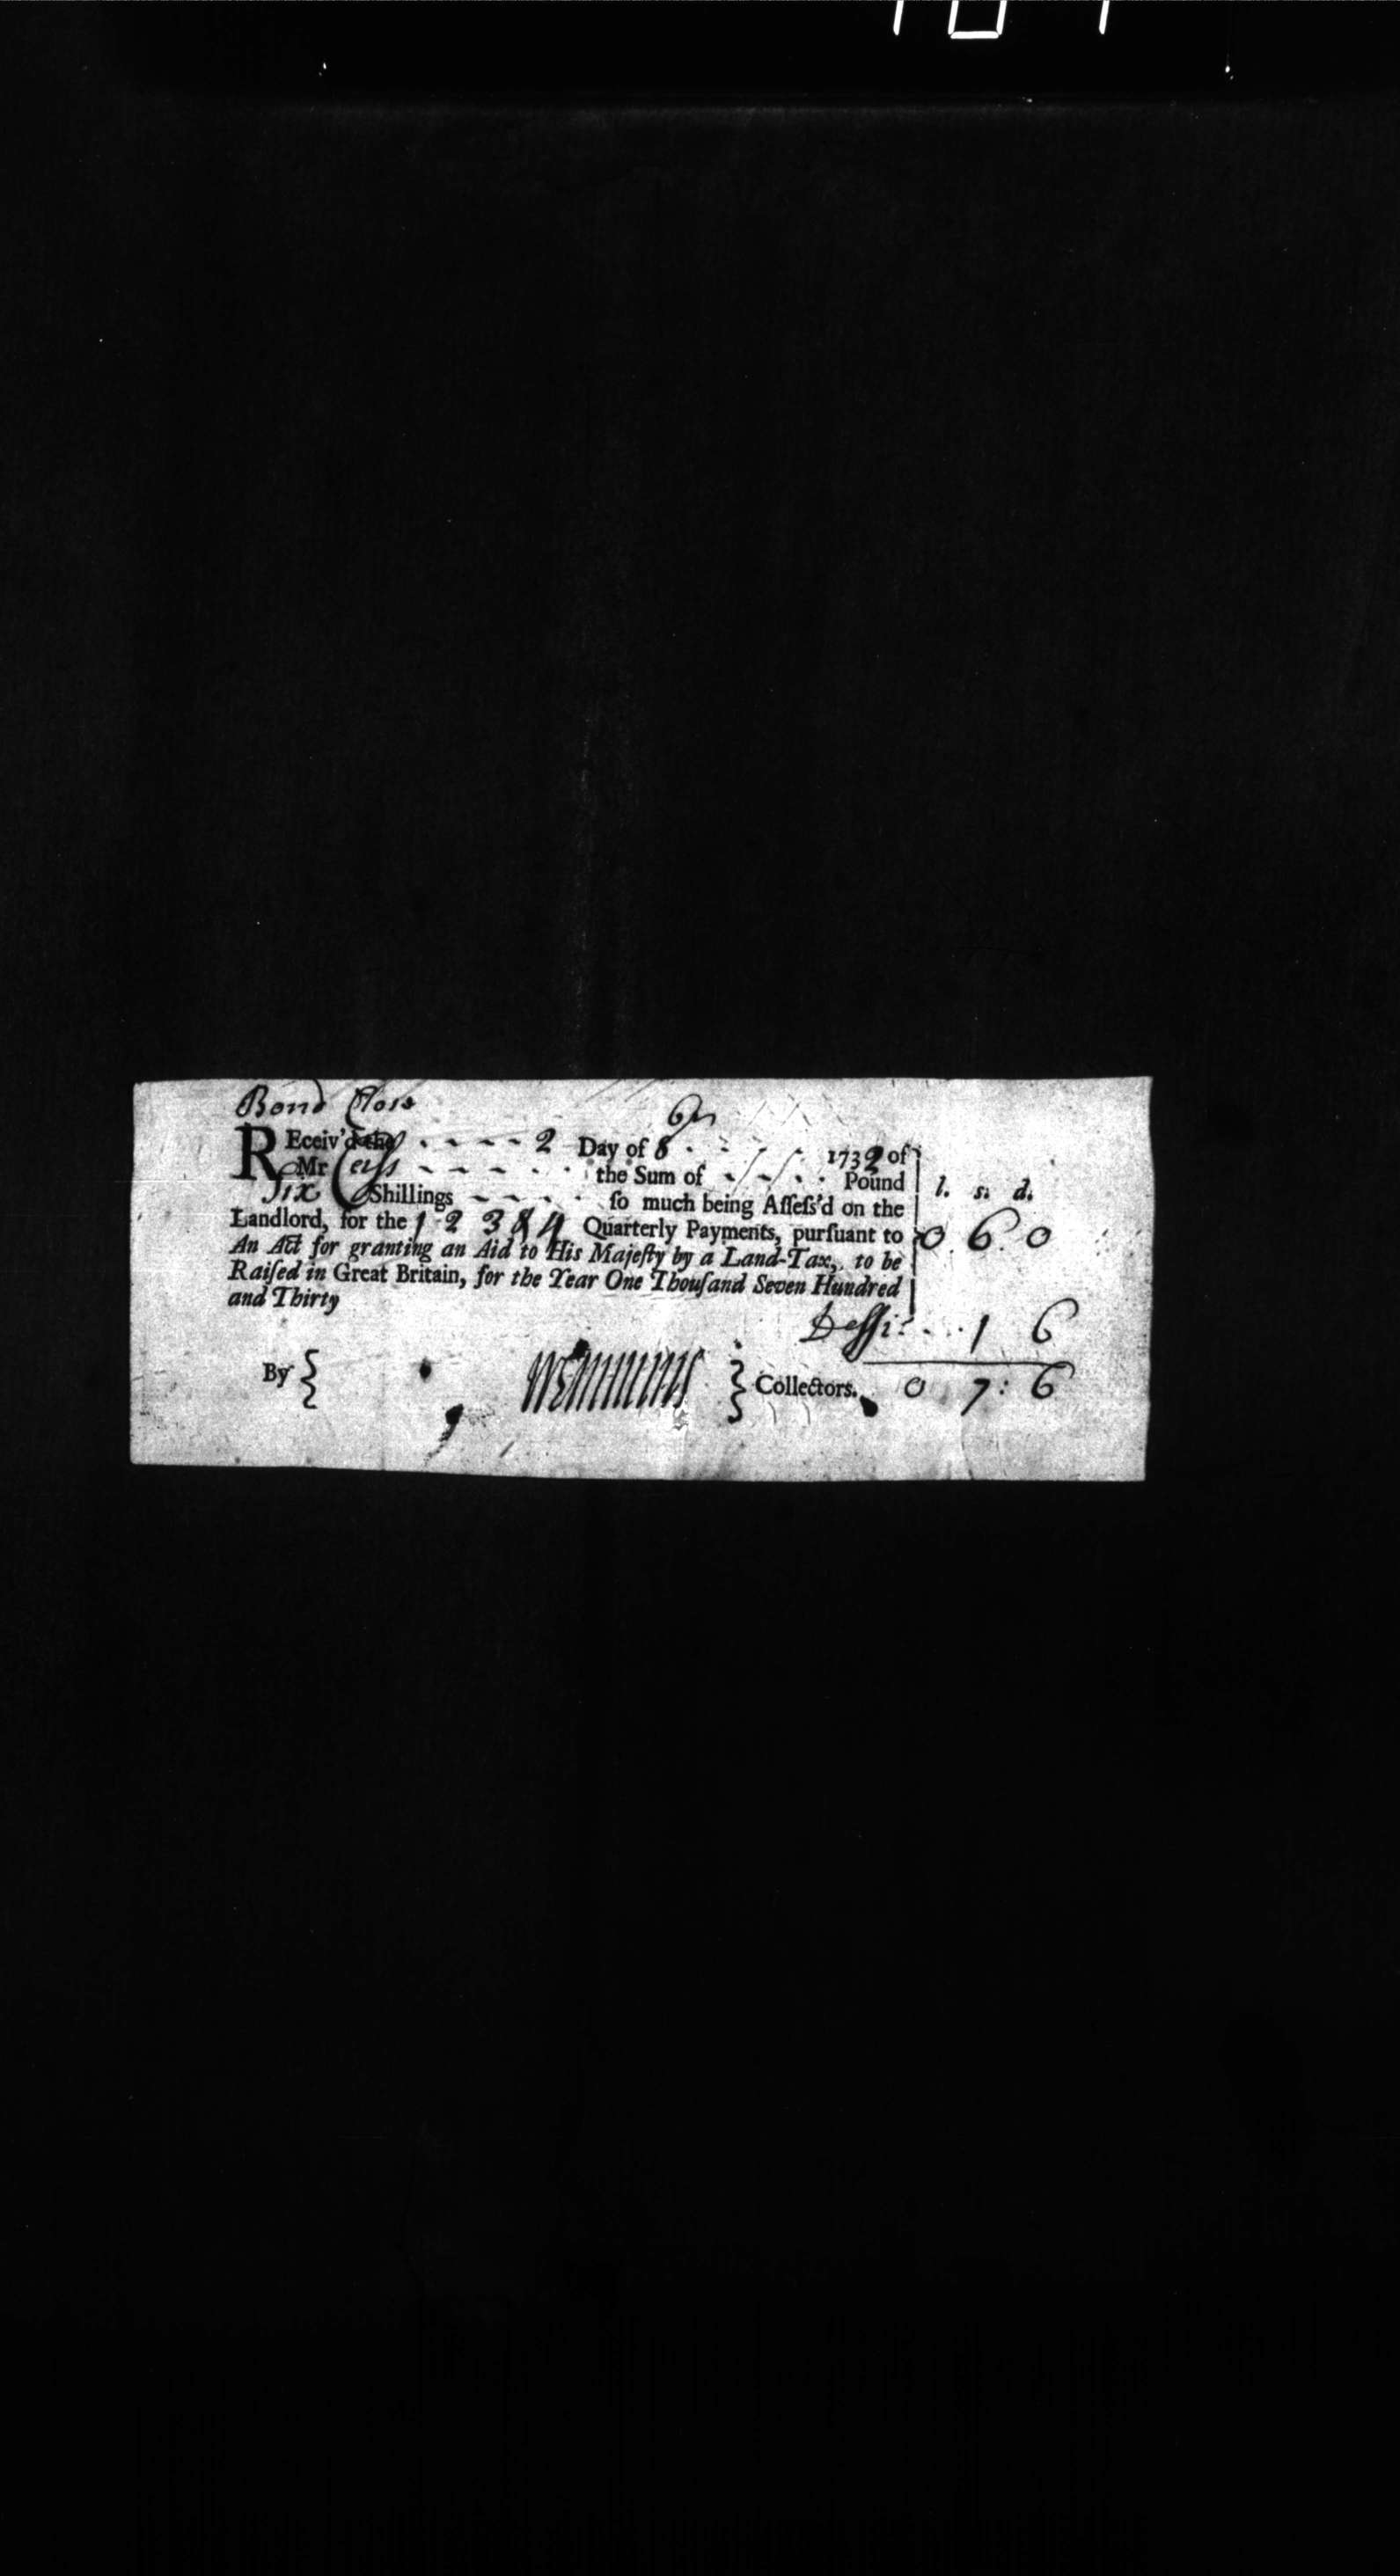 Bond Close
REceiv'd the - - - - 2 Day of 8br 1732 of
Mr - - - - the Sum of - - - Pound
Six Shillings - - - - ſo much being Aſſeſs'd on the
l. s. d.
Landlord, for the 1 2 3 & 4 Quarterly Payments, purſuant to
0 6 0
An Act for granting an Aid to His Majeſty by a Land-Tax, to be
Raiſed in Great Britain, for the Year One Thouſand Seven Hundred
and Thirty
1 6
By { } Collectors. 0 7 : 6